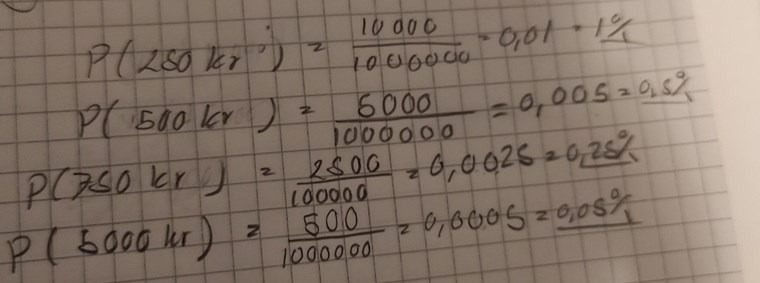 P(250 kr) = 10 000 / 1000000 = 0,01 = 1%
P(500 kr) = 5000 / 1000000 = 0,005 = 0,5%
P(750 kr) = 2500 / 100000 = 0,0025 = 0,25%
P(5000 kr) = 500 / 1000000 = 0,0005 = 0,05%